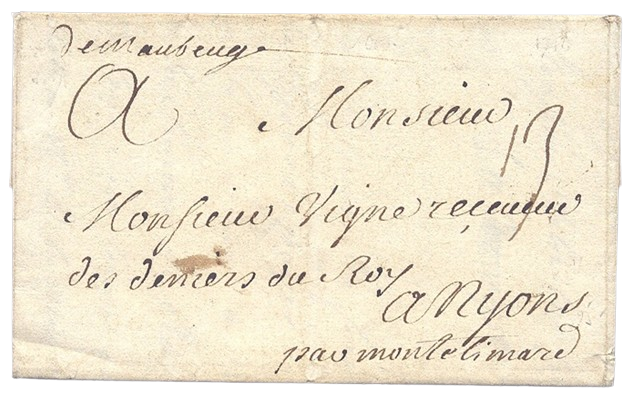 de Maubeuge
A Monsieur
13
Monsieur Vigne receveur
des deniers du Roy
a Nyons
par montelimard